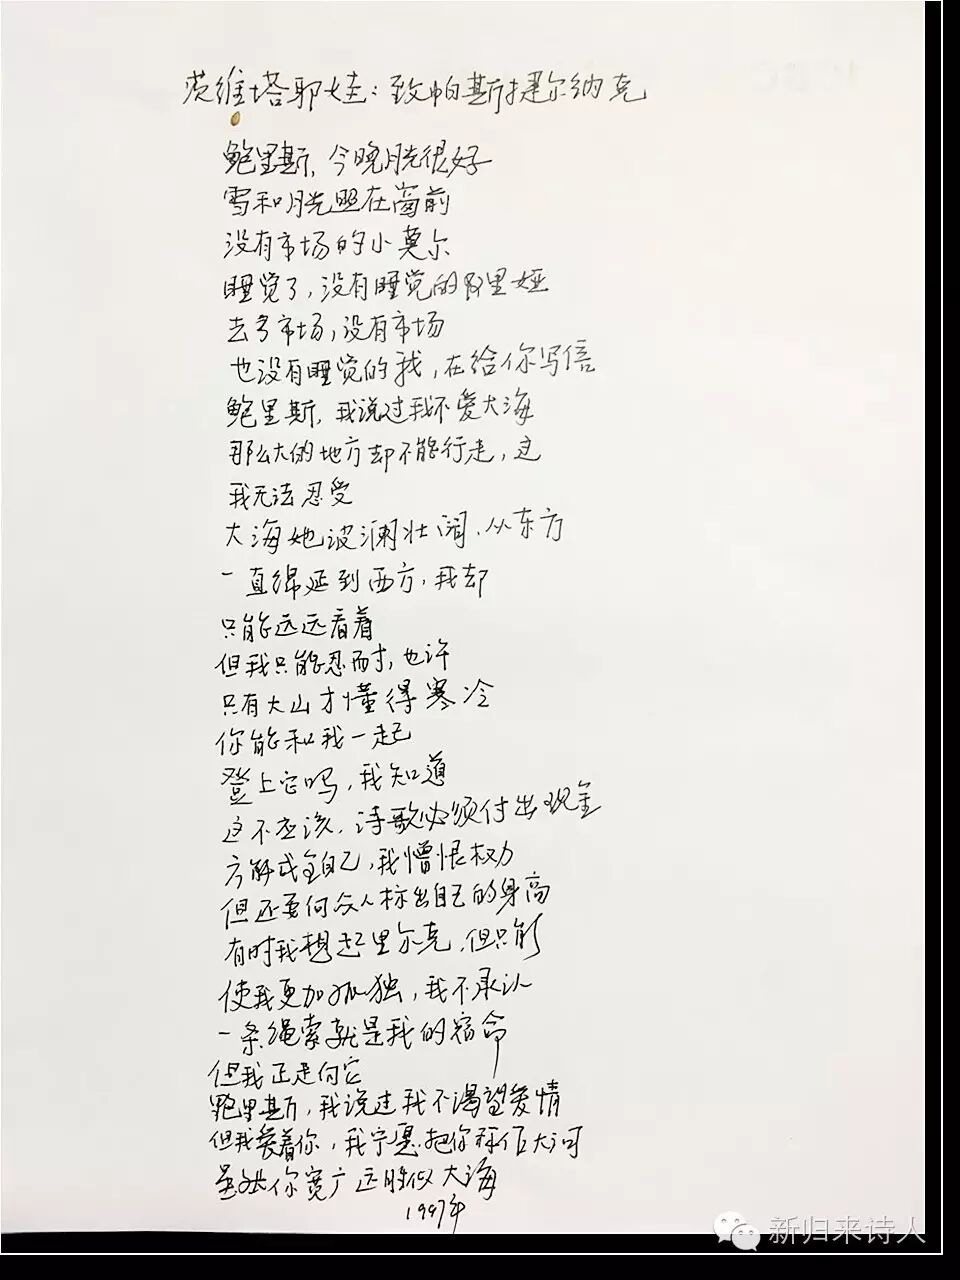 茨维塔耶娃：致帕斯捷尔纳克
鲍里斯，今晚月光很好
雪和月光照在窗前
没有市场的小莫尔
睡觉了，没有睡觉的阿里娅
去了市场，没有市场
也没有睡觉的我，在给你写信
鲍里斯，我说过我不爱大海
那么大的地方却不能行走，这
我无法忍受
大海她波澜壮阔，从东方
一直绵延到西方，我却
只能远远看着
但我只能忍耐，也许
只有大山才懂得寒冷
你能和我一起
登上它吗，我知道
这不应该，诗歌必须付出现金
方能成全自己，我憎恨权力
但还要向众人标出自己的身高
有时我想起里尔克，但只能
使我更加孤独，我不承认
一条绳索就是我的宿命
但我正走向它
鲍里斯，我说过我不渴望爱情
但我爱着你，我宁愿把你称作大河
虽然你宽广远胜似大海
1997年
新归来诗人